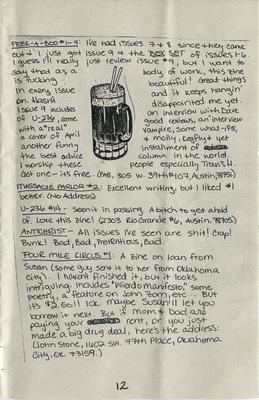 PEEL-A-BOO #1-9: I've had issues 7 & 8 since they came
out & I just got issue 9 & the BOX SET of issues 1-6.
I guess I'll really just review issue #9, but I want to
say that as a body of work, this zine
is fucking beautiful! Great things
in every issue and it keeps hangin'
on. Hasn't disappointed me yet.
Issue 9 includes an interview with Dave
of U-236, some good reviews, an interview
with a "real" vampire, some what-ifs,
a cover of April a molly,
another funny installment of
the best advice column in the world.
I worship these people especially Tina! 4.
Get one-it's free. (PAB, 305 W. 39th #107, Austin, 78751)
MASSAGE PARLOR #2: Excellent writing, but I liked #1
better. (No Address)
U-236 #14 - Seen it in passing. A bitch to get ahold
of. Love this zine! (2303 Rio Grande #6, Austin, 78705)
ANTICHRIST - All issues I've seen are shit! Crap!
Bunk! Bad, Bad, Pretentious, Bad.
FOUR MILE CIRCUS #1: A zine on loan from
Susan (some guy sent it to her from Oklahoma
City). I haven't finished it, but it looks
intriguing. Includes "Wierdo Manifesto," some
poetry, a feature on John Zorn, etc... But
it's $2.50!! Ick. Maybe Susan'll let you
borrow it next. But if Mom & Dad are
paying your rent, or you just
made a big drug deal, here's the address:
(John Stone, 1602 SW. 77th Place, Oklahoma
City, OK 73159.)
12